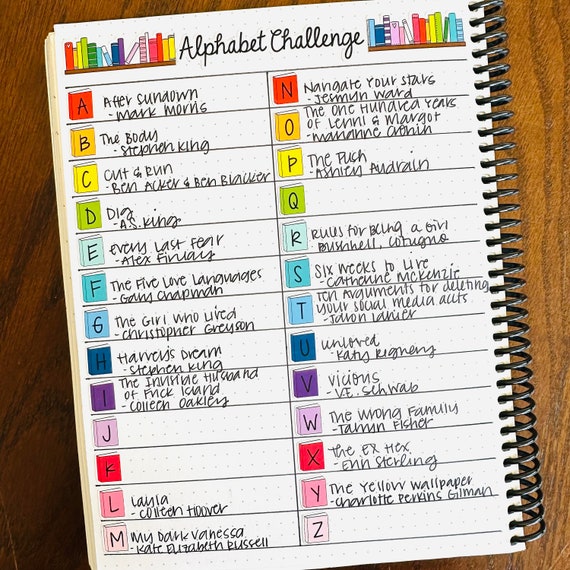 Alphabet Challenge
A
After Sundown
- Mark Morris
B
The Body
- Stephen King
C
Cut & Run
- Ben Acker & Ben Blacker
D
Dig
- A.S. King
E
Every Last Fear
- Alex Finlay
F
The Five Love Languages
- Gary Chapman
G
The Girl Who Lived
- Christopher Greyson
H
Harvey's Dream
- Stephen King
I
The Invisible Husband
of Frick Island
- Colleen Oakley
J
K
L
Layla
- Colleen Hoover
M
My Dark Vanessa
- Kate Elizabeth Russell
N
Navigate Your Stars
- Jesmyn Ward
O
The One Hundred Years
of Lenni & Margot
- Marianne Cronin
P
The Push
- Ashley Audrain
Q
R
Rules for Being a Girl
- Bushnell, Cotugno
S
Six Weeks to Live
- Catherine McKenzie
T
Ten Arguments for deleting
your social media accts
- Jaron Lanier
U
unloved
- Katy Regnery
V
Vicious
- V.E. Schwab
W
The Wrong Family
- Tarryn Fisher
X
The Ex Hex
- Erin Sterling
Y
The Yellow Wallpaper
- Charlotte Perkins Gilman
Z